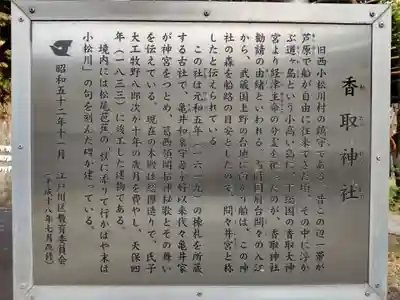 香取神社
旧西小松川村の鎮守である。昔この辺一帯が
芦原で船が自由に往来できた頃、その中に浮か
ぶ道ヶ島という小高い島に、下総国の香取大神
宮より経津主命の分霊を祀ったのが、香取神社
勧請の由緒といわれる。当時国府台間々の入江
から、武蔵国上野の台地に向かう船は、この神
社の森を船路の目安としたので、間々井宮と称
したと伝えられている。
この社は元和五年(一六一九)の棟札を所蔵
する古社で、亀井和泉守を千好以来代々亀井家
が神宮をつとめ、葛西領間招神社歌とその舞い
を伝えている。現在の本殿は総欅造りで、氏子
大工牧野八郎次が十年の歳月を費やし、天保四
年(一八三三)に竣工した建物である。
境内には松尾芭蕉の「秋に添うて行かばや末は
小松川」の句を刻んだ碑が建っている。
昭和五十二年十一月 江戸川区教育委員会
(平成十八年七月改修)